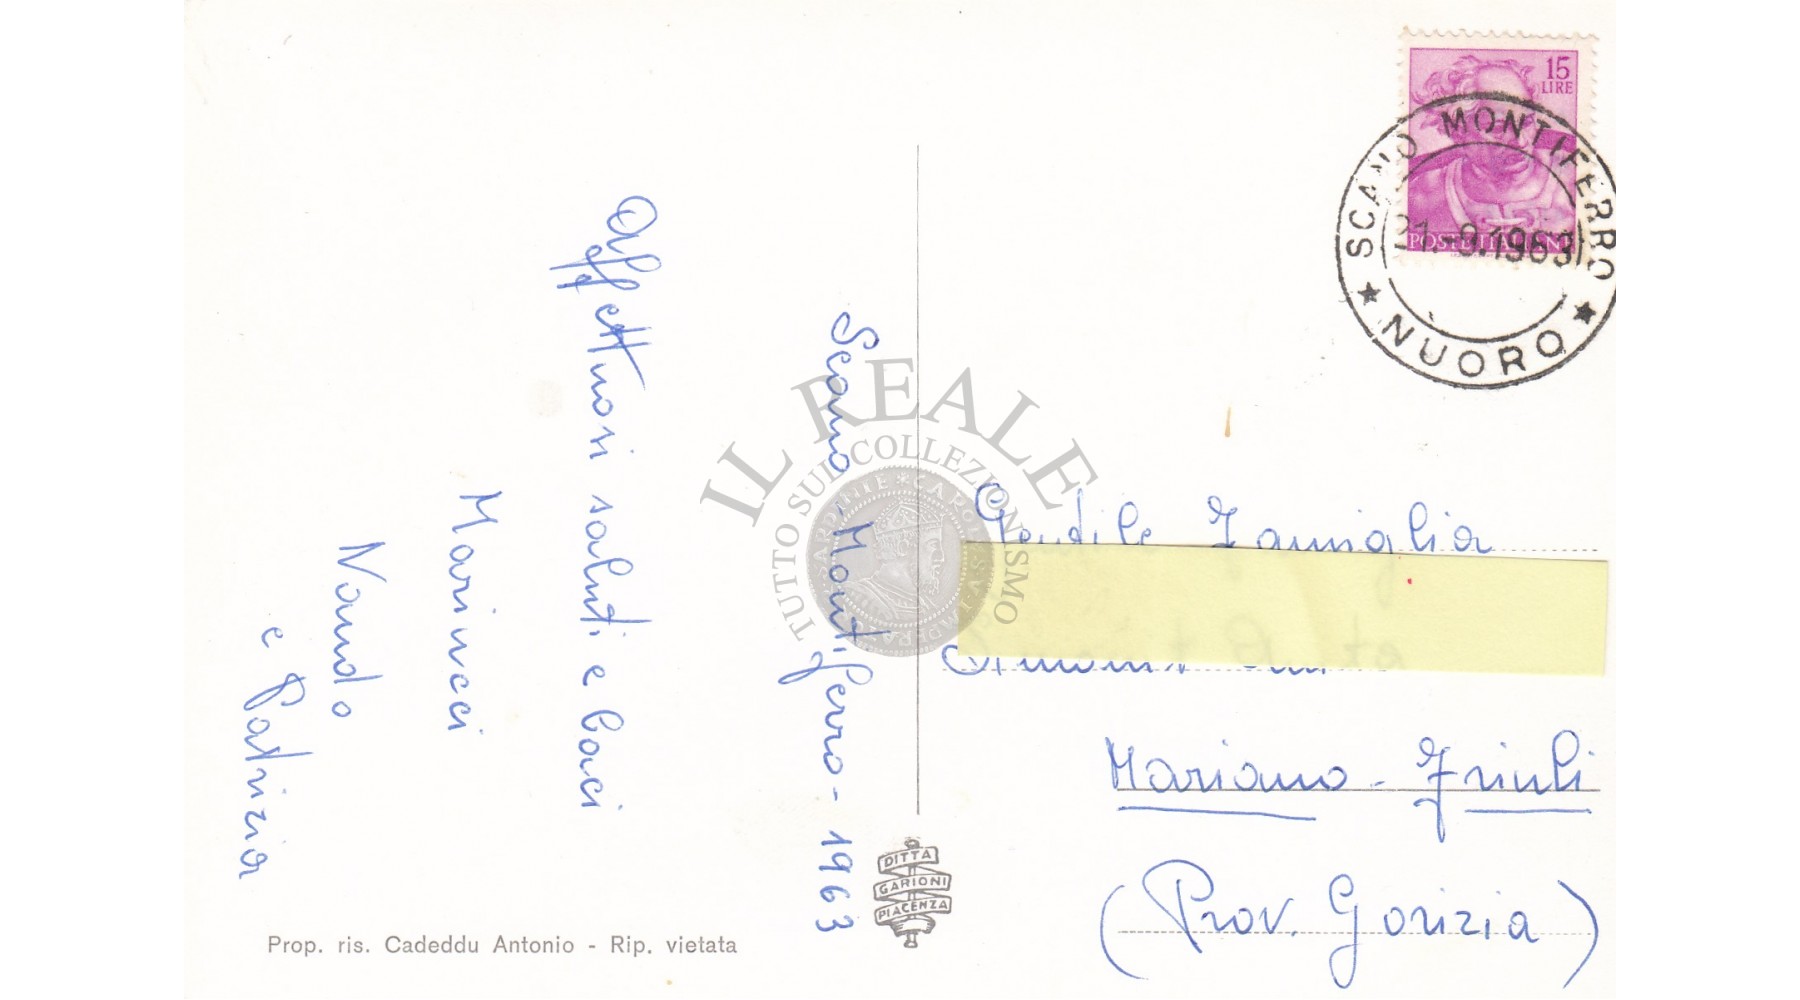 Scano-Montiferro-1963
Affettuosi saluti e baci
Marinci
Nando
e Patrizia
Prop. ris. Cadeddu Antonio - Rip. vietata
DITTA
GARIONI
PIACENZA
15
LIRE
POSTE ITALIANE
SCANO MONTIFERRO
21.-9.1963
★ NUORO ★
IL REALE
TUTTO SUL COLLEZIONISMO
Gentile Famiglia
Mariano - Friuli
(Prov. Gorizia)